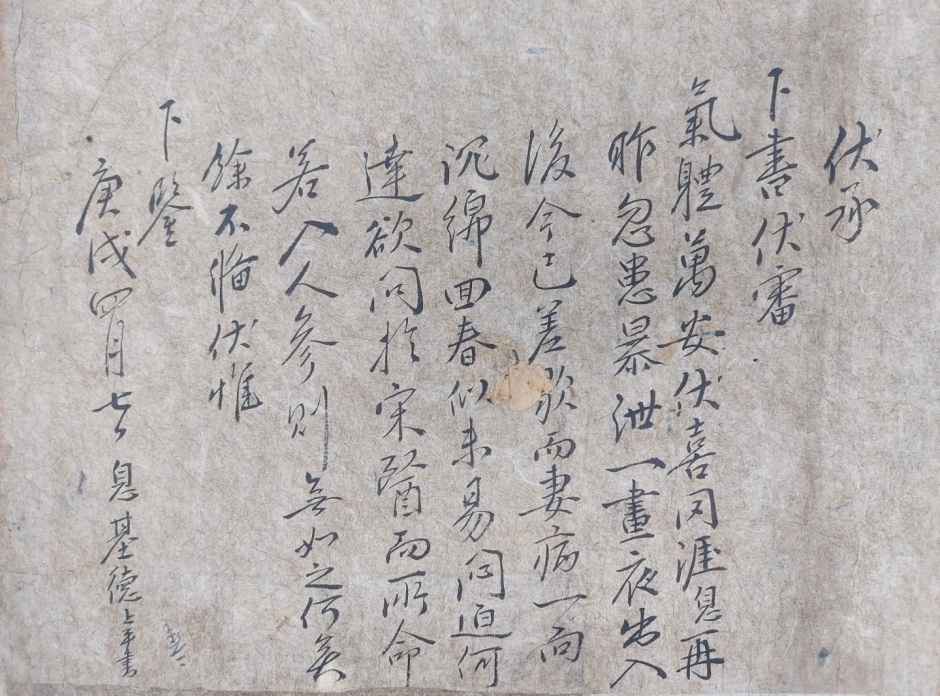 伏承
下書伏審
氣體萬安伏喜罔涯息再
昨忽患暴泄一晝夜出入
後今已差歇而妻病一向
沉綿回春似未易悶迫何
達欲問於宋醫而所命
若入人參則無如之何矣
餘不備伏惟
下鑒
庚戌四月七日 息基德上平書